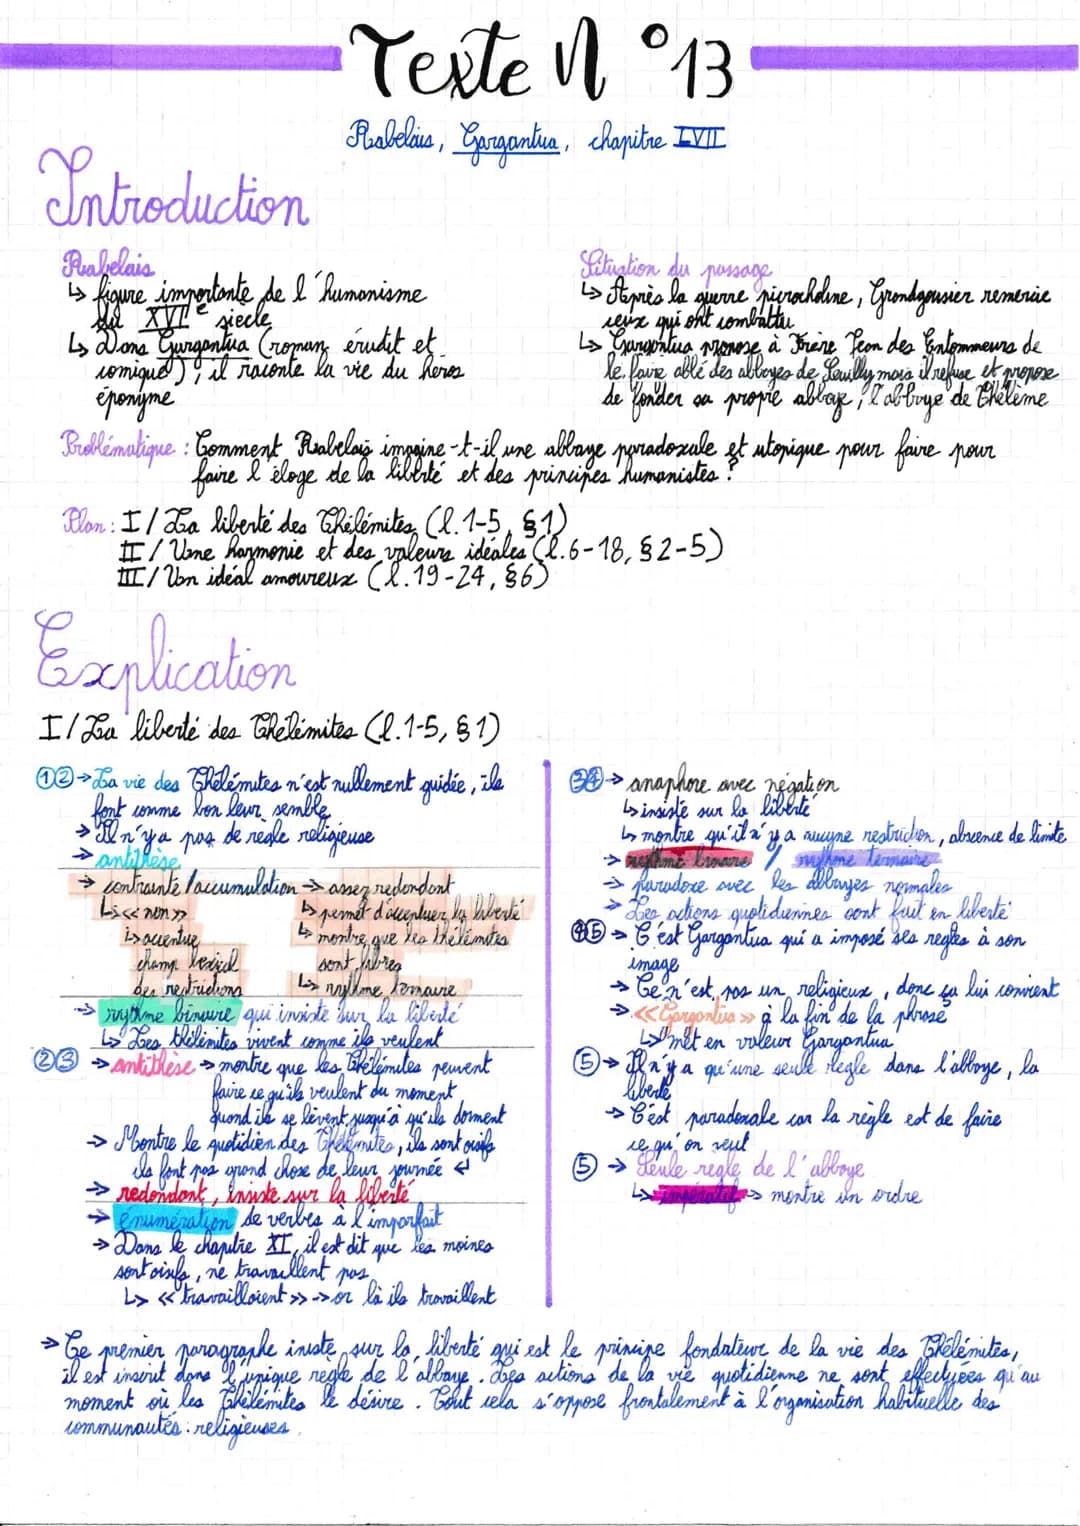 Texte N°13
Rabelais, Gargantua, chapitre LVII
Introduction
Rabelais
↳ figure importante de l'humanisme
du XVIe siecle
↳ Dans Gargantua (roman érudit et
comique), il raconte la vie du heros
éponyme
Situation du passage
↳ Après la guerre picrocholine, Grandgousier remercie
ceux qui ont combattu
↳ Gargantua propose à Frère Jean des Entommeurs de
le faire abbé des abbayes de Seuilly mais il refuse et propose
de fonder sa propre abbaye, l'abbaye de Thélème
Problématique : Comment Rabelais imagine-t-il une abbaye paradoxale et utopique pour faire pour
faire l'éloge de la liberté et des principes humanistes ?
Plan : I / La liberté des Thélémites (l.1-5, §1)
II / Une harmonie et des valeurs idéales (l.6-18, §2-5)
III / Un idéal amoureux (l.19-24, §6)
Explication
I / La liberté des Thélémites (l.1-5, §1)
①② → La vie des Thélémites n'est nullement guidée, ils
font comme bon leur semble
→ Il n'y a pas de regle religieuse
→ antithèse
→ contrainte / accumulation → assez redondant
↳ << non >>
↳ accentue
champ lexical
des restrictions
↳ permet d'accentuer la liberté
↳ montre que les thélémites
sont libres
↳ rythme ternaire
→ rythme binaire qui insiste sur la liberté
↳ Les thélémites vivent comme ils veulent
②③ → antithèse → montre que les Thélémites peuvent
faire ce qu'ils veulent du moment
quand ils se lèvent jusqu'à qu'ils dorment
→ Montre le quotidien des Thélémites, ils sont oisifs
ils font pas grand chose de leur journée ↵
→ redondant, insiste sur la liberté
→ énumération de verbes à l'imparfait
→ Dans le chapitre XI, il est dit que les moines
sont oisifs, ne travaillent pas
↳ << travailloient >> → or là ils travaillent
③④ → anaphore avec négation
↳ insiste sur la liberté
↳ montre qu'il n'y a aucune restriction, absence de limite
→ rythme binaire / rythme ternaire
→ paradoxe avec les abbayes normales
→ Les actions quotidiennes sont fait en liberté
④⑤ → C'est Gargantua qui a imposé ses regles à son
image
→ Ce n'est pas un religieux, donc ça lui convient
→ << Gargantua >> à la fin de la phrase
↳ met en valeur Gargantua
⑤ → Il n'y a qu'une seule regle dans l'abbaye, la
liberté
→ C'est paradoxale car la règle est de faire
ce qu'on veut
⑤ → Seule regle de l'abbaye
↳ impératif → montre un ordre
→ Ce premier paragraphe insiste sur la liberté qui est le principe fondateur de la vie des Thélémites,
il est inscrit dans l'unique regle de l'abbaye. Les actions de la vie quotidienne ne sont effectuées qu'au
moment où les Thélémites le désire. Tout cela s'oppose frontalement à l'organisation habituelle des
communautés religieuses.